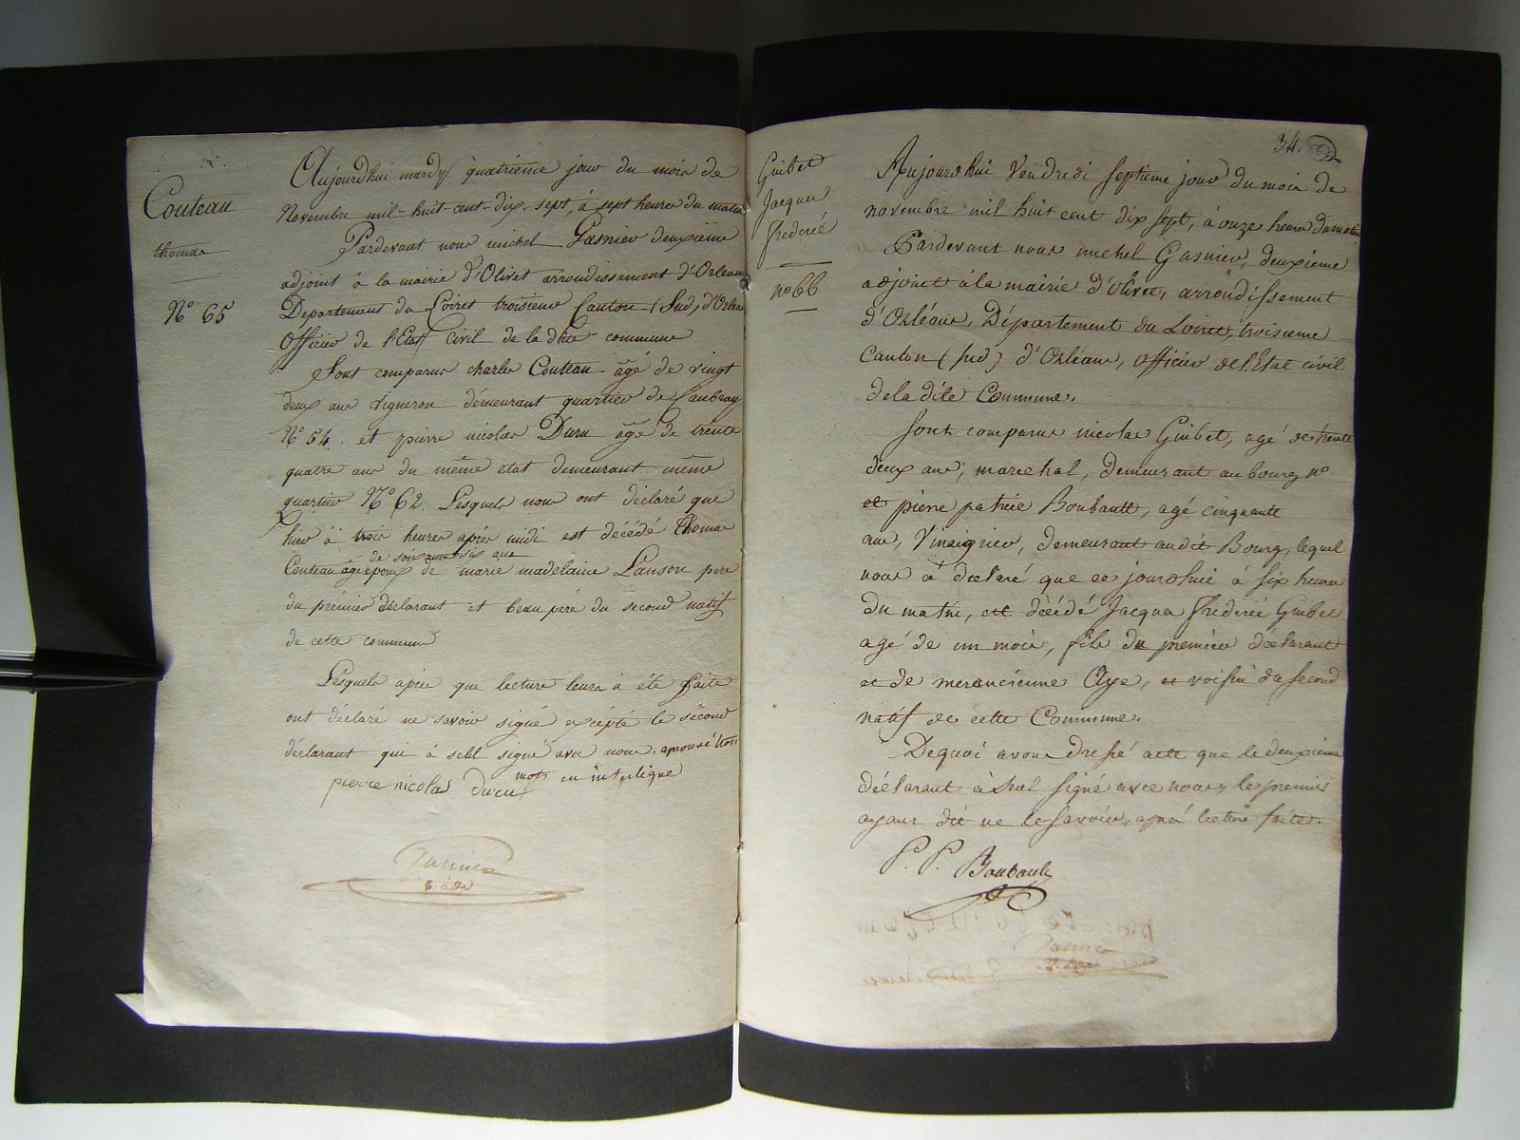 Couteau
thomas
N° 65
Aujourdhui mardy quatrieme jour du mois de
Novembre mil-huit-cent-dix-sept, à sept heures du matin
Pardevant nous michel Gasnier deuxieme
adjoint à la mairie d'Olivet arrondissement d'Orleans
Departement du Loiret troisieme Canton (Sud) d'Orleans
Officier de l'Etat Civil de la dite commune
Sont comparus charles Couteau âgé de vingt
deux ans vigneron demeurant quartier de
N° 54. et pierre nicolas Duru âgé de trente
quatre ans du même etat demeurant même
quartier N° 62. Lesquels nous ont déclaré que
hier à trois heures après midi est décédé Thomas
de soixante six ans
Couteau âgé époux de marie madelaine Lanson pere
du premier déclarant et beau pere du second natif
de cette commune
Lesquels après que lecture leurs à été faite
ont déclaré ne savoir signé excépté le second
déclarant qui à signé avec nous. aprouvé trois
mots en interligne
pierre nicolas duru
Gasnier
34.
Guibet
Jacques
frederic
n° 66
Aujourdhui Vendredi septieme jour du mois de
novembre mil huit cent dix sept, à onze heures du matin
Pardevant nous michel Gasnier, deuxieme
adjoint à la mairie d'olivet, arrondissement
d'Orléans, Département du Loiret, troisieme
Canton (sud) d'Orléans, officier de l'Etat civil
de la dite Commune.
Sont comparus nicolas Guibet, agé de trente
deux ans, marechal, demeurant au bourg n°
et pierre patrice Boubault, agé cinquante
ans, Vinaigrier, demeurant audit Bourg, lequel
nous à déclaré que ce jourdhui à six heures
du matin, est décédé Jacques frederic Guibet
agé de un mois, fils du premier déclarant
et de Aye, et voisin du second
natif de cette Commune.
Dequoi avons dressé acte que le deuxieme
déclarant à seul signé avec nous, le premier
ayant dit ne le savoir, après lecture faite.
P. P. Boubault
Gasnier